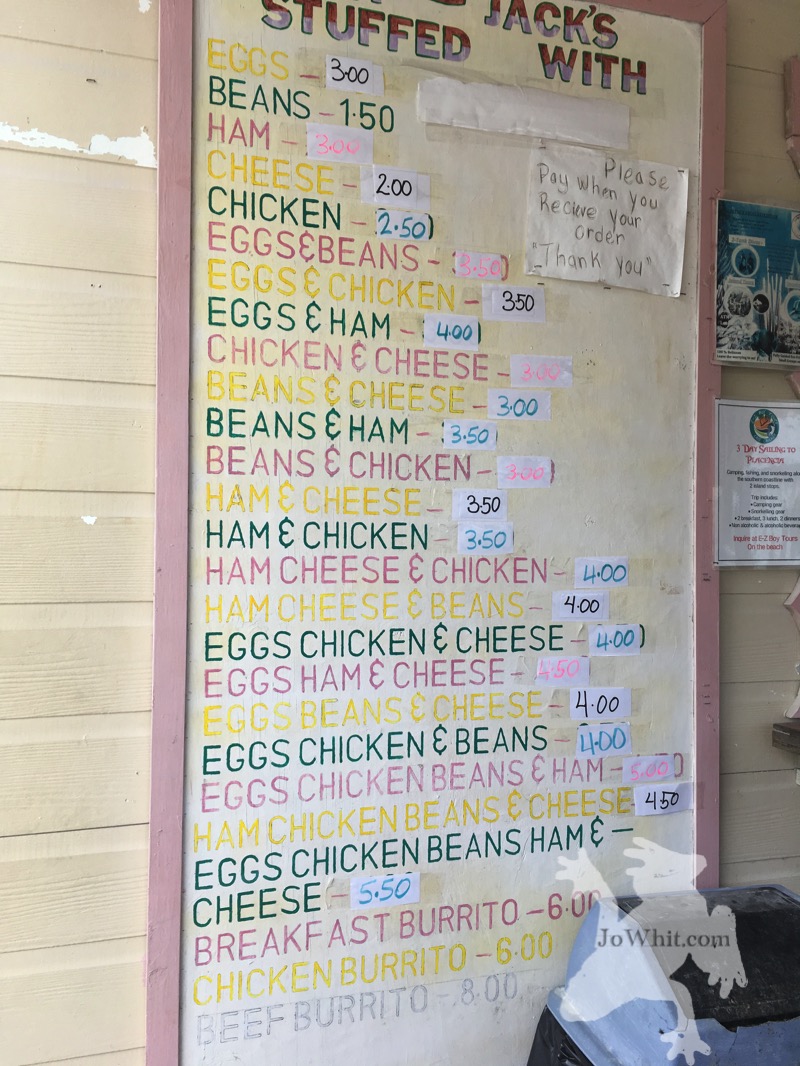 JACK'S
STUFFED WITH
EGGS - 3.00
BEANS - 1.50
HAM - 3.00
CHEESE - 2.00
CHICKEN - 2.50
EGGS & BEANS - 3.50
EGGS & CHICKEN - 3.50
EGGS & HAM - 4.00
CHICKEN & CHEESE - 3.00
BEANS & CHEESE - 3.00
BEANS & HAM - 3.50
BEANS & CHICKEN - 3.00
HAM & CHEESE - 3.50
HAM & CHICKEN - 3.50
HAM CHEESE & CHICKEN - 4.00
HAM CHEESE & BEANS - 4.00
EGGS CHICKEN & CHEESE - 4.00
EGGS HAM & CHEESE - 4.50
EGGS BEANS & CHEESE - 4.00
EGGS CHICKEN & BEANS - 4.00
EGGS CHICKEN BEANS & HAM - 5.00
HAM CHICKEN BEANS & CHEESE 4.50
EGGS CHICKEN BEANS HAM & -
CHEESE - 5.50
BREAKFAST BURRITO - 6.00
CHICKEN BURRITO - 6.00
BEEF BURRITO - 8.00
Please
Pay when you
Recieve your
order
"Thank you"
3 DAY SAILING TO
PLACENCIA
Camping, fishing, and snorkelling along
the southern coastline with
2 island stops.
Trip includes:
• Camping gear
• Snorkelling gear
• 2 breakfast, 3 lunch, 2 dinners
• Non alcoholic & alcoholic beverages
Inquire at E-Z Boy Tours
On the beach
JoWhit.com